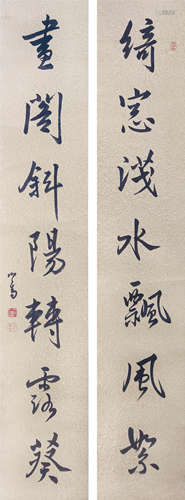 綺窓淺水飄風絮
畫閣斜陽轉露葵
心畬